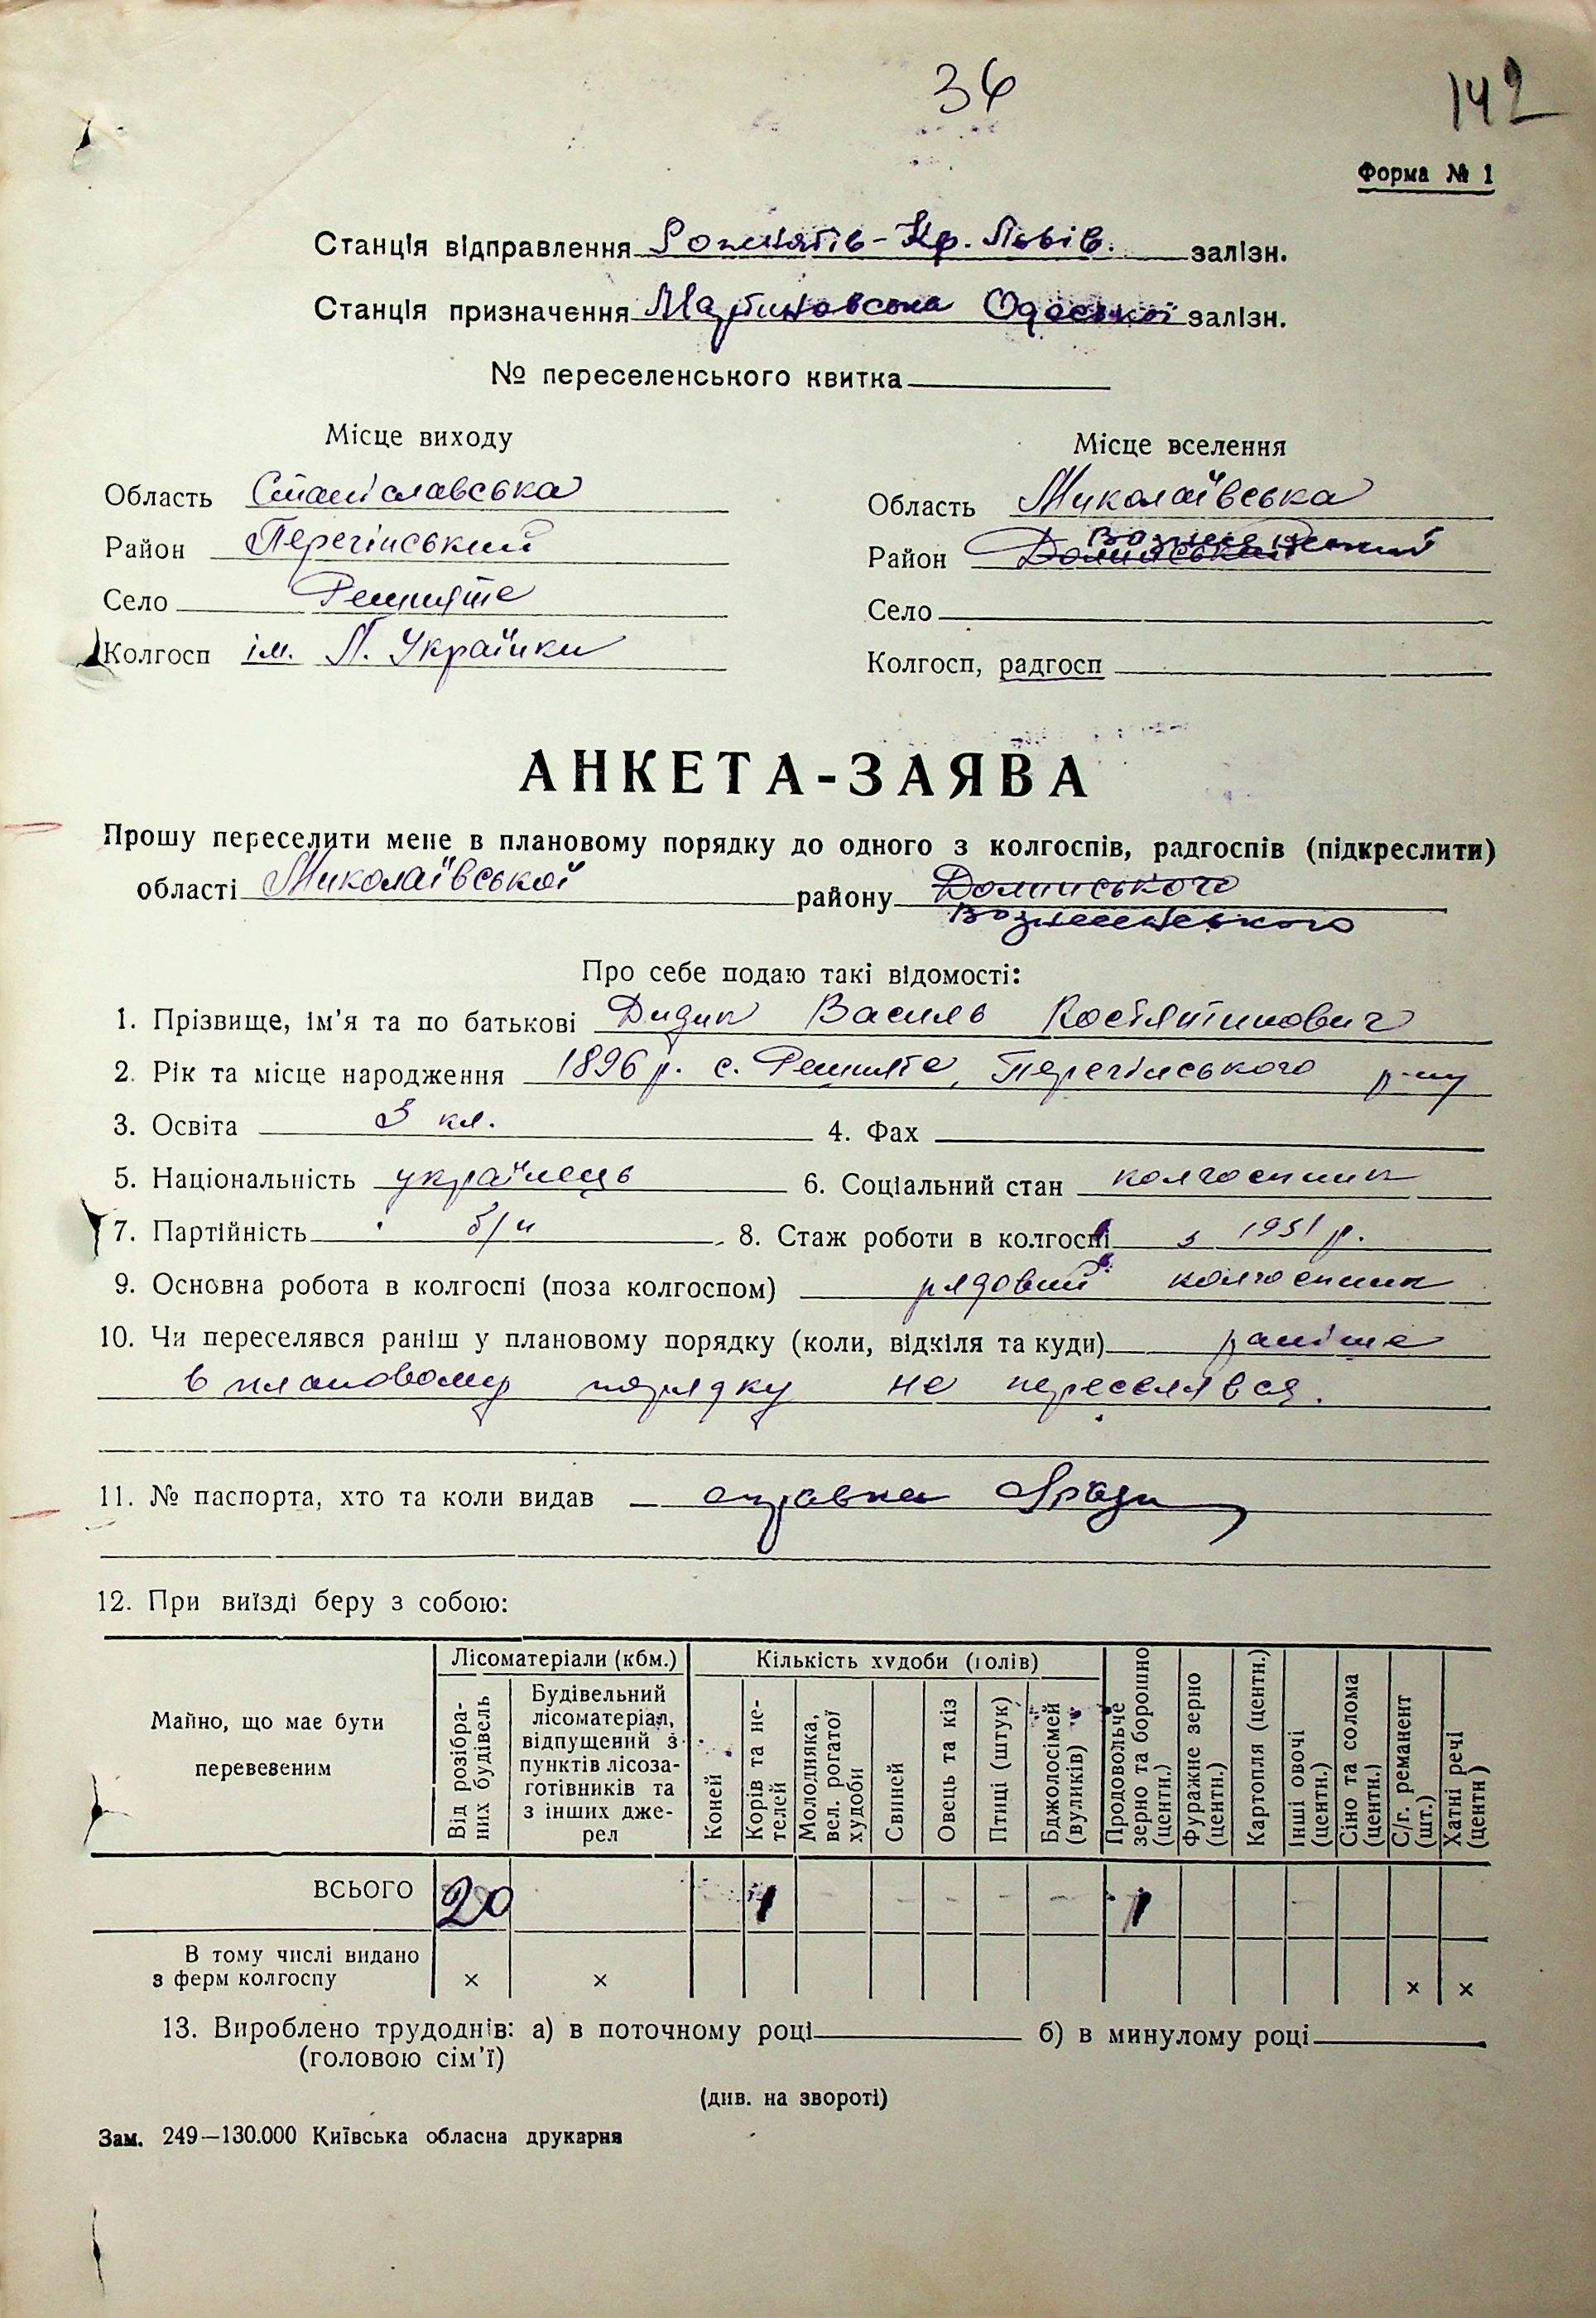 36
142
Форма № 1
Станція відправлення Рожнятів-Кр. Львів. залізн.
Станція призначення Мартиновська Одеської залізн.
№ переселенського квитка
Місце виходу
Область Станіславська
Район Перегінський
Село Ремняте
Колгосп ім. Л. Українки
Місце вселення
Вознесенський
Область Миколаївська
Район Доманівський
Село
Колгосп, радгосп
АНКЕТА-ЗАЯВА
Прошу переселити мене в плановому порядку до одного з колгоспів, радгоспів (підкреслити)
області Миколаївської району
Вознесенського
Про себе подаю такі відомості:
1. Прізвище, ім'я та по батькові Дидик Василь Костянтинович
2. Рік та місце народження 1896 р. с. Ремняте, Перегінського р-ну
3. Освіта 3 кл. 4. Фах
5. Національність українець 6. Соціальний стан колгоспник
7. Партійність б/п 8. Стаж роботи в колгоспі з 1951 р.
9. Основна робота в колгоспі (поза колгоспом) рядовий колгоспник
10. Чи переселявся раніш у плановому порядку (коли, відкіля та куди) раніше
в плановому порядку не переселявся.
11. № паспорта, хто та коли видав — справка
12. При виїзді беру з собою:
Майно, що має бути перевезеним
Лісоматеріали (кбм.)
Від розібраних будівель
Будівельний лісоматеріал, відпущений з пунктів лісозаготівників та з інших джерел
Кількість худоби (голів)
Коней
Корів та нетелей
Молодняка, вел. рогатої худоби
Свиней
Овець та кіз
Птиці (штук)
Бджолосімей (вуликів)
Продовольче зерно та борошно (центн.)
Фуражне зерно (центн.)
Картопля (центн.)
Інші овочі (центн.)
Сіно та солома (центн.)
С/г. реманент (шт.)
Хатні речі (центн)
ВСЬОГО 20 1 1
В тому числі видано
з ферм колгоспу × × × ×
13. Вироблено трудоднів: а) в поточному році б) в минулому році
(головою сім'ї)
(див. на звороті)
Зам. 249—130.000 Київська обласна друкарня